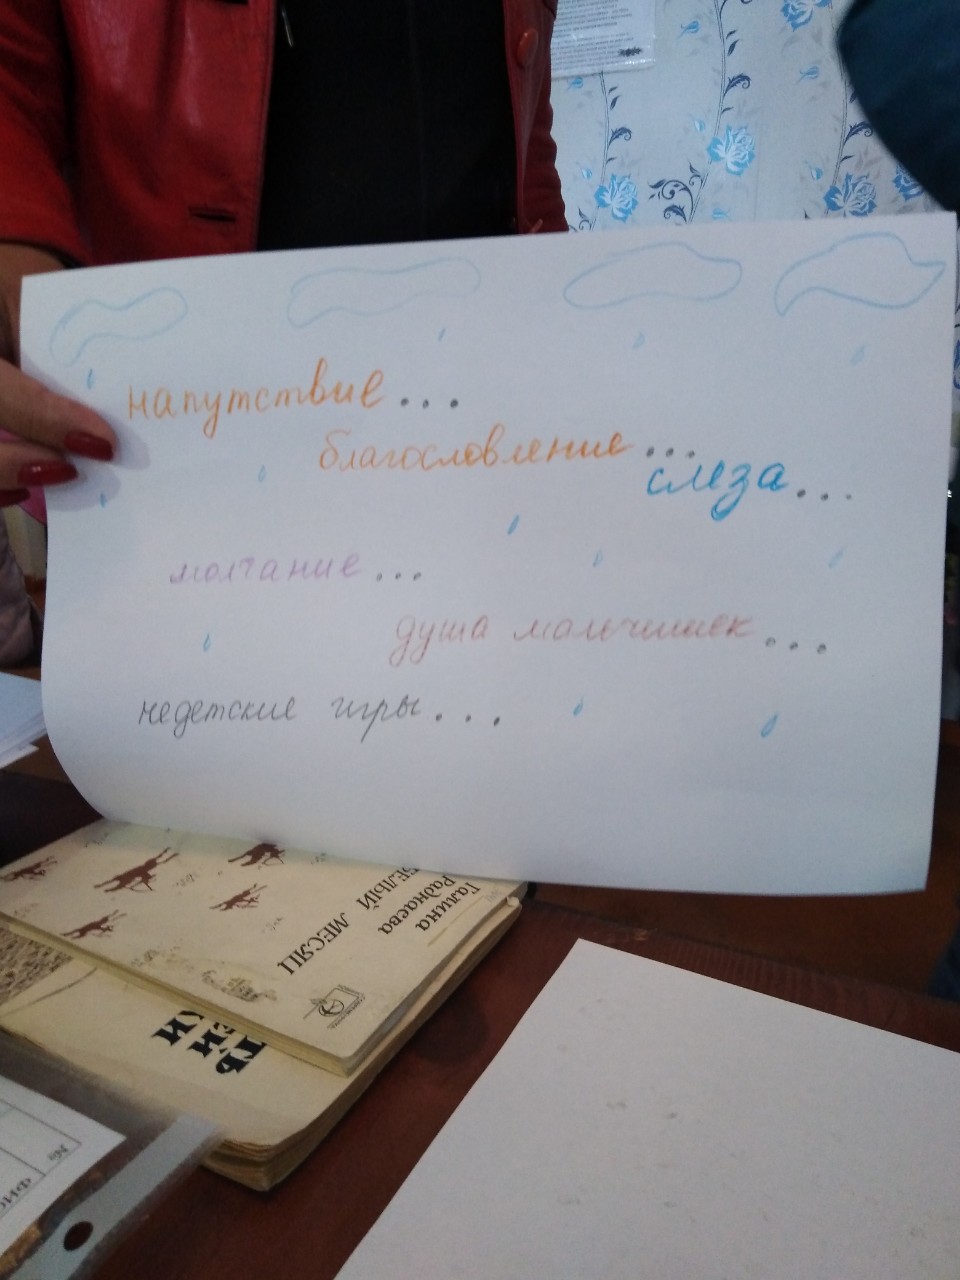 напутствие...
благословление...
слеза...
молчание...
душа мальчишек...
недетские игры...
Галина
Раднаева
БЕЛЫЙ МЕСЯЦ
№